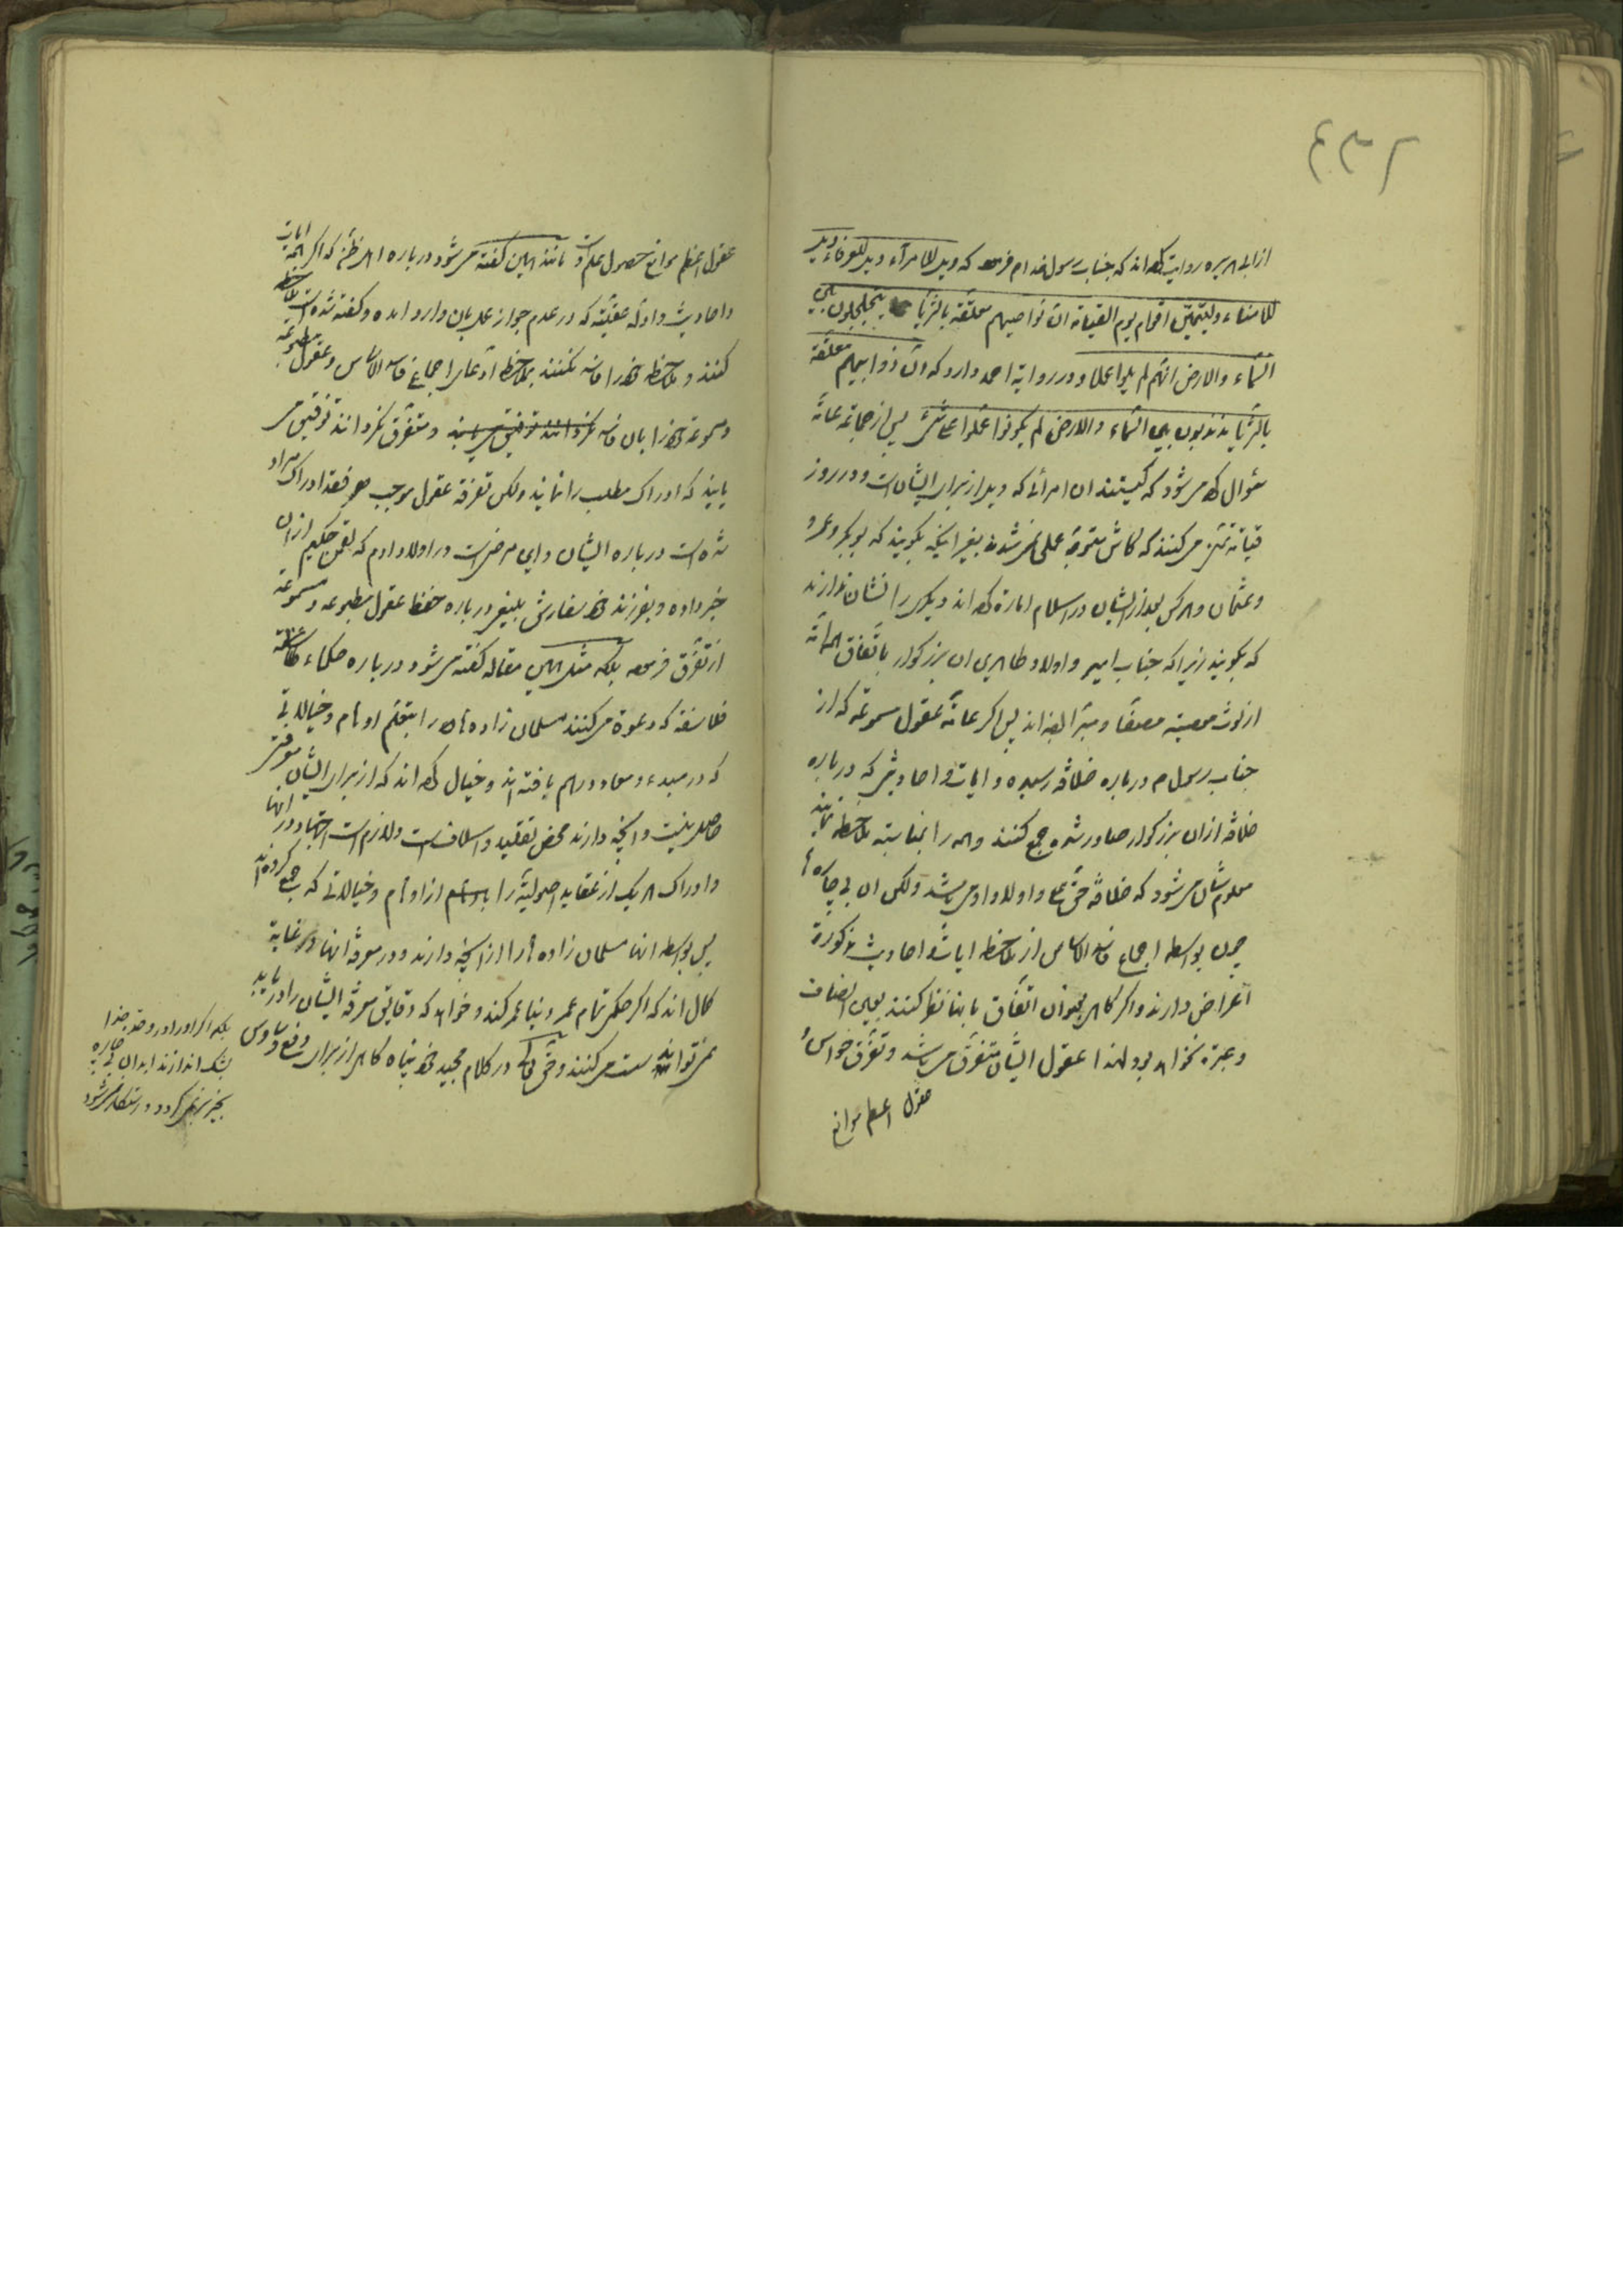 از ابی هریره روایت کرده‌اند که جناب رسول خدا م فرموده که ویل للامرآء ویل للعرفاء ویل
للامناء ولیتمنّین اقوام یوم القیمة انّ نواصیهم معلّقة بالثریّا یتجلجلون بین
السّماء والارض انّهم لم یلوا عملا و در روایة احمد دارد که انّ ذوائبهم معلّقة
بالثریّا یتذبذبون بین السّماء والارض لم یکونوا عملوا علی شیء پس از جماعة عامّه
سؤال کرده میشود که کیستند ان امرائی که ویل از برای ایشانست و در روز
قیامة تمنّی میکنند که کاش متوجّه عملی نمیشدند بغیر اینکه بگویند که ابوبکر و عمر و
و عثمان و هرکس بعد از ایشان در اسلام امارة کرده‌اند دیگر را نشان ندارند
که بگویند زیرا که جناب امیر و اولاد طاهرین ان بزرگوار باتّفاق
از لوث معصیة معصفا و مبرّا بوده‌اند پس اگر عامّه عقول مسموعه که از
جناب رسول م درباره خلافة رسیده و ایات و احادیثی که درباره
خلافة از ان بزرگوار صادر شده جمع کنند و همه را بمناسبة ملاحظه نمایند
معلومشان میشود که خلافة حقّ علی و اولاد او میباشد ولکن ان بی‌چاره‌ها
چون بواسطه اجماع فاسد الاساس از ملاحظه ایات و احادیث مذکورة
اغراض دارند و اگر گاهی بعنوان اتفّاق بانها نظر کنند بعین انصاف
و عبرة نخواهد بود لهذا عقول ایشان متفرّق میباشد و تفرّق حواس و
عقول اعظم موانع
عقول اعظم موانع حصول علم است و مانند همین گفته میشود درباره اهل ظنّ که اگر همه ایات
و احادیث و ادلّه عقلیّه که در عدم جواز عمل بان وارد امده و گفته شده است ملاحظه
کنند و ملاحظه خود را فاسد نکنند بملاحظه ادّعای اجماع فاسد الاساس و عقول مطبوعه
و مسموعة خود را بان فاسد نگردانند و متفرّق نگردانند توفیق می
یابند که ادراک مطلب را نمایند ولکن تفرقه عقول موجب فقد ادراک مراد
شده است درباره ایشان و این مرضی است در اولاد ادم که لقمن حکیم از ان
خبر داده و بفرزند خود سفارش بلیغ درباره حفظ عقول مطبوعه و مسموعه
از تفرّق فرموده بلکه مثل همین مقاله گفته میشود درباره حکماء و
فلاسفة که دعوة میکنند مسلمان زاده‌ها را بتعلّم اوهام و خیالاتی
که در مبدء و معاد درهم بافته‌اند و خیال کرده‌اند که از برای ایشان معرفتی
حاصل نیست و انچه دارند محض تقلید و اسلاف است و لازم است اجتهاد در انها
و ادراک هر یک از عقاید اصولیّه را از اوهام و خیالاتی که جمع کرده‌اند
پس بواسطه انها مسلمان زاده‌ها را از انچه دارند و در معرفة انها در غایة
کمال‌اند که اگر حکمی تمام عمر دنیا عمر کند و خواهد که دقایق معرفة ایشان را دریابد
نمیتواند سست میکنند و حقّ تعالی در کلام مجید خود پناه گاهی از برای رفع وساوس
بلکه اگر او را در وقتی
بشک اندازند ان بی چاره
بخیری نمیگردد و رستگار نمیشود